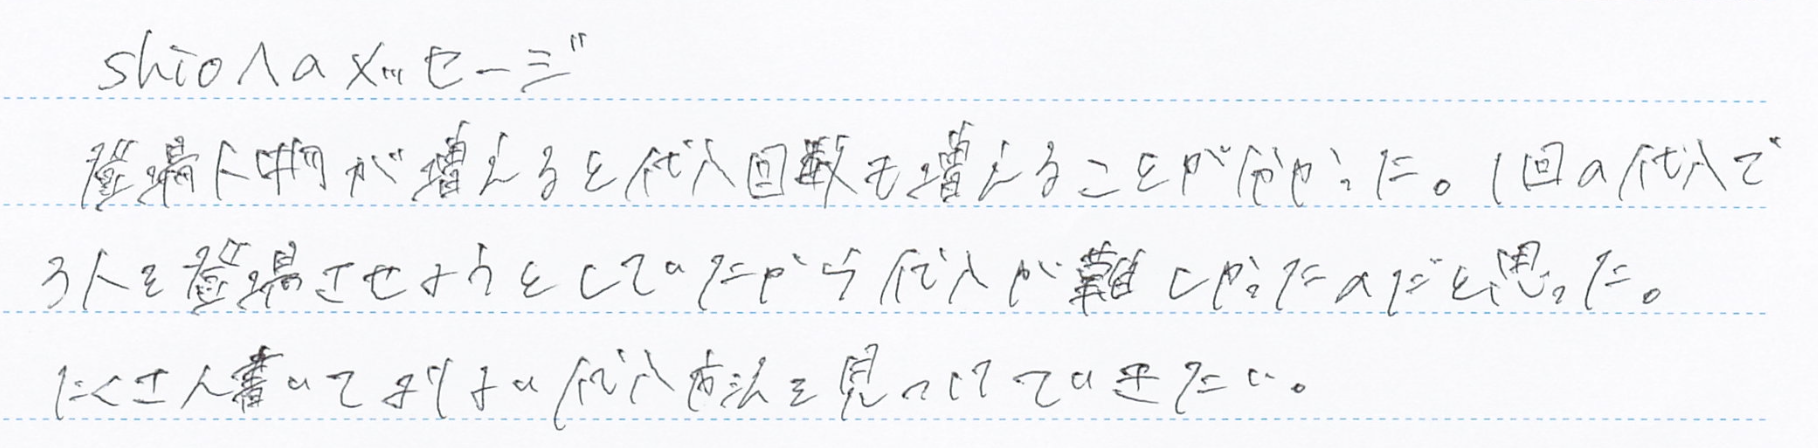 shioへのメッセージ
登場人物が増えると代入回数も増えることが分かった。1回の代入で
3人を登場させようとしていたから代入が難しかったのだと思った。
たくさん書いてよりよい代入方法を見つけていきたい。